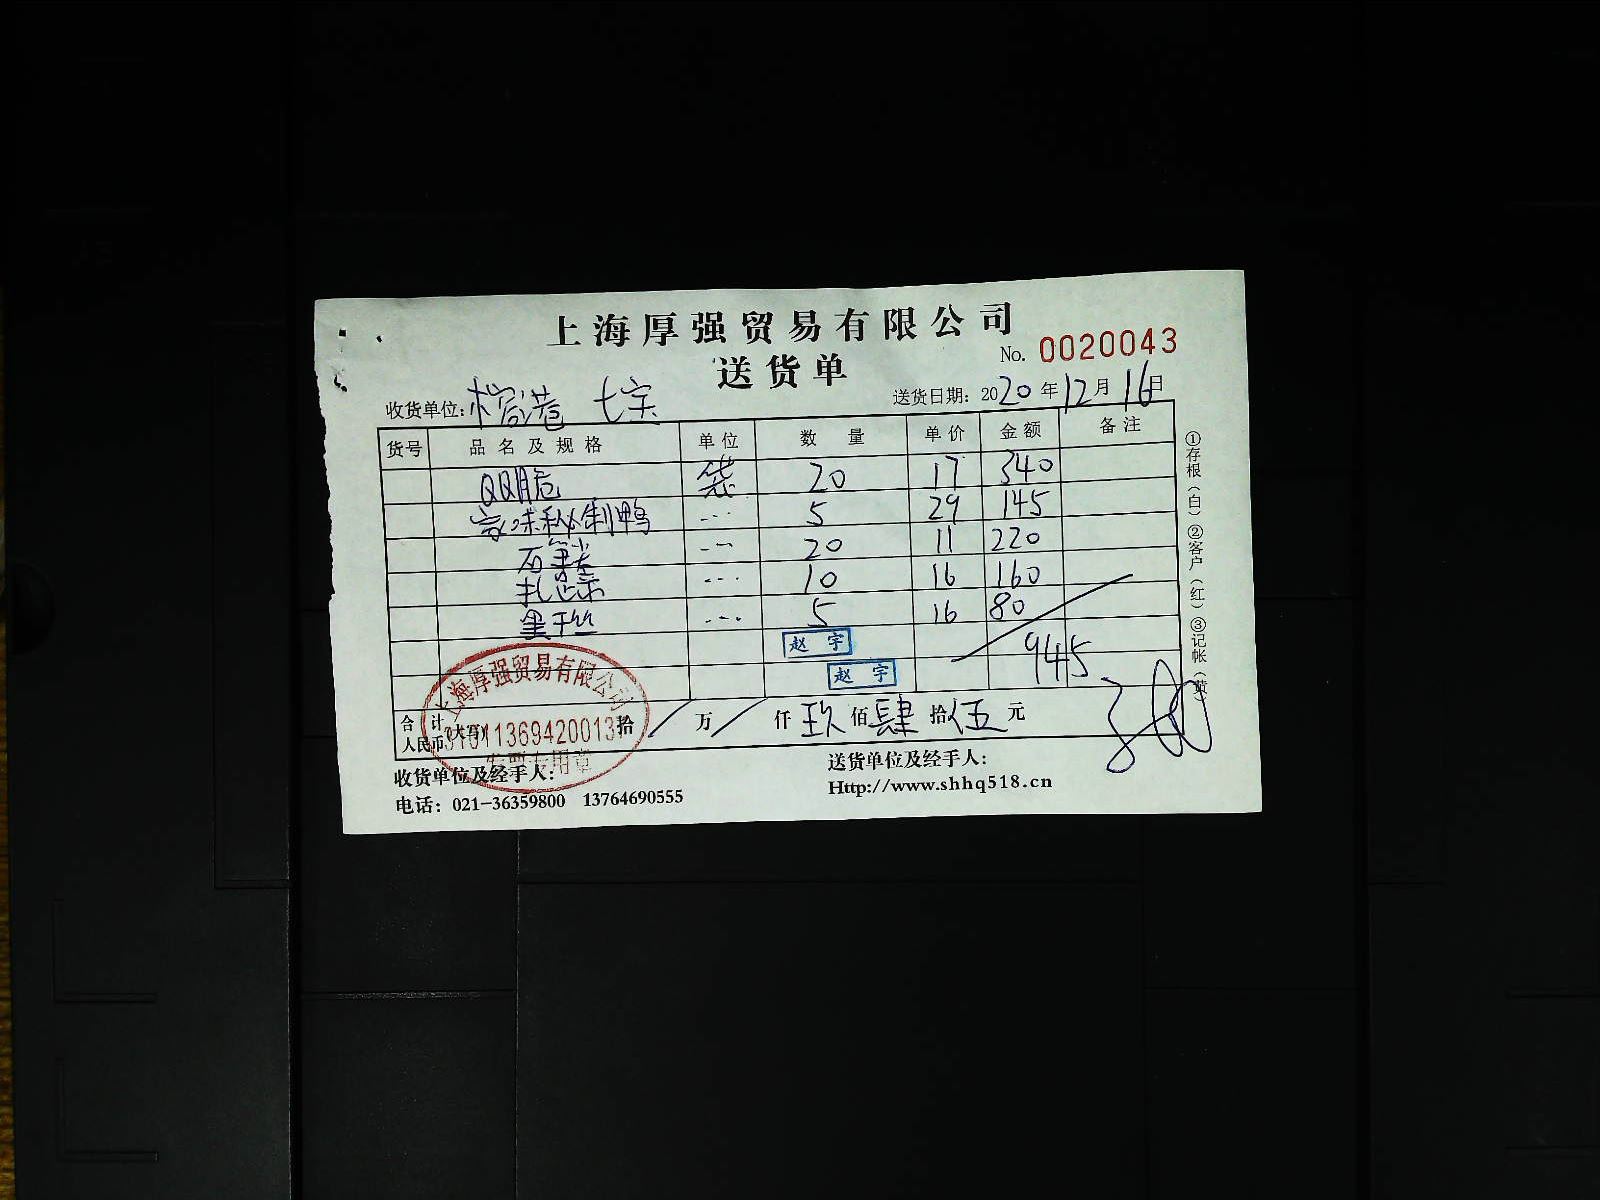 上海厚强贸易有限公司
送货单
No. 0020043
收货单位: 榕港 七宝
送货日期: 2020年12月16日
货号 品名及规格 单位 数量 单价 金额 备注
QQ脆 袋 20 17 340
家味秘制鸭 --- 5 29 145
石笋尖 --- 20 11 220
扎蹄 --- 10 16 160
黑千丝 --- 5 16 80
赵宇
945
赵宇
合计人民币(大写) 拾 / 万 / 仟 玖 佰 肆 拾 伍 元
上海厚强贸易有限公司
发票专用章
收货单位及经手人:
送货单位及经手人:
电话: 021-36359800 13764690555
Http://www.shhq518.cn
①存根(白) ②客户(红) ③记帐(黄)